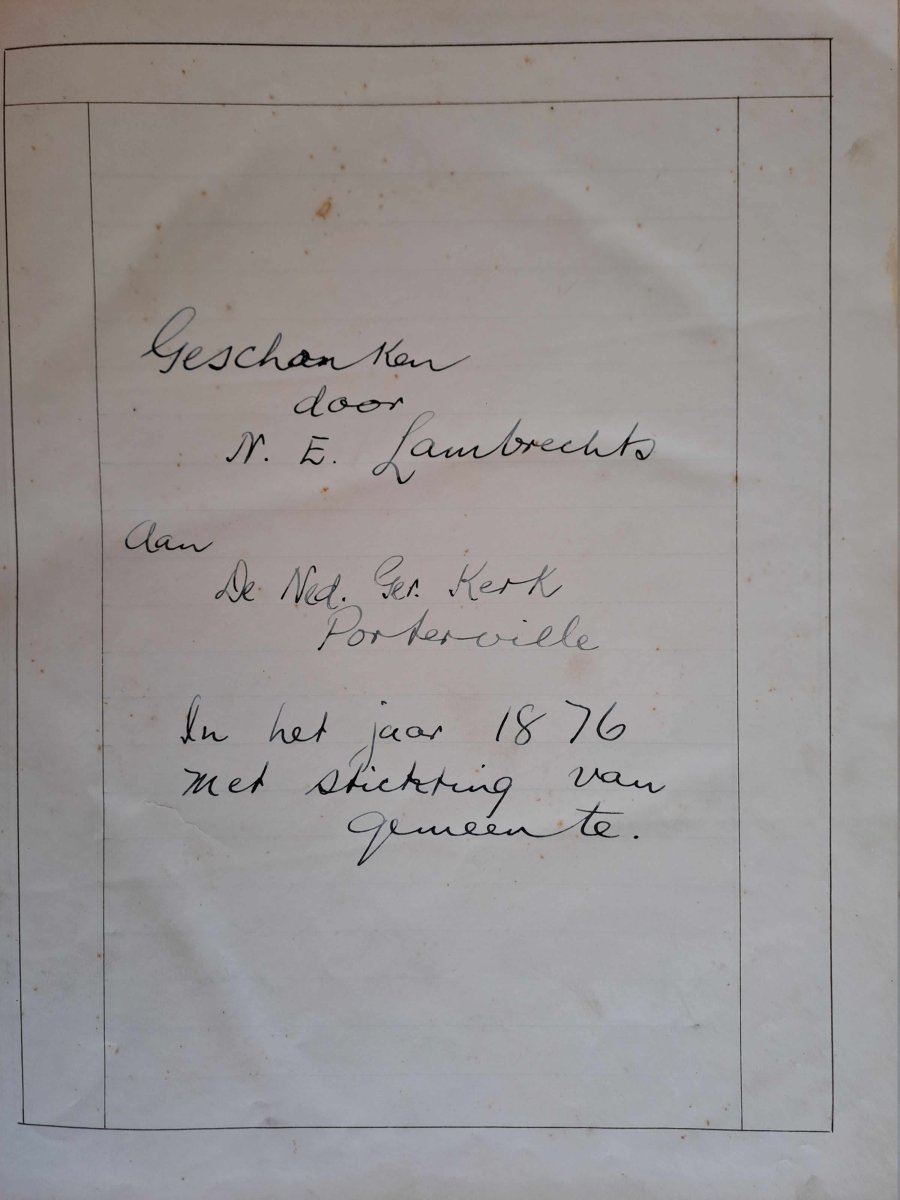 Geschanken
door
N. E. Lambrechts
aan
De Ned. Ger. Kerk
Porterville
In het jaar 1876
met stickting van
gemeente.